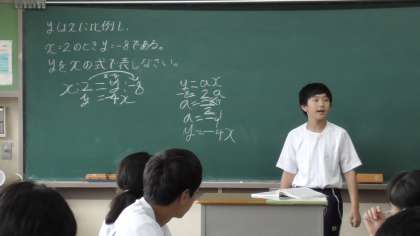 yはxに比例し、
x=2のときy=-8である。
yをxの式で表しなさい。
x:2=y:-8
y=-4x
y=ax
-8=2a
a=-8/2
a=-4
y=-4x